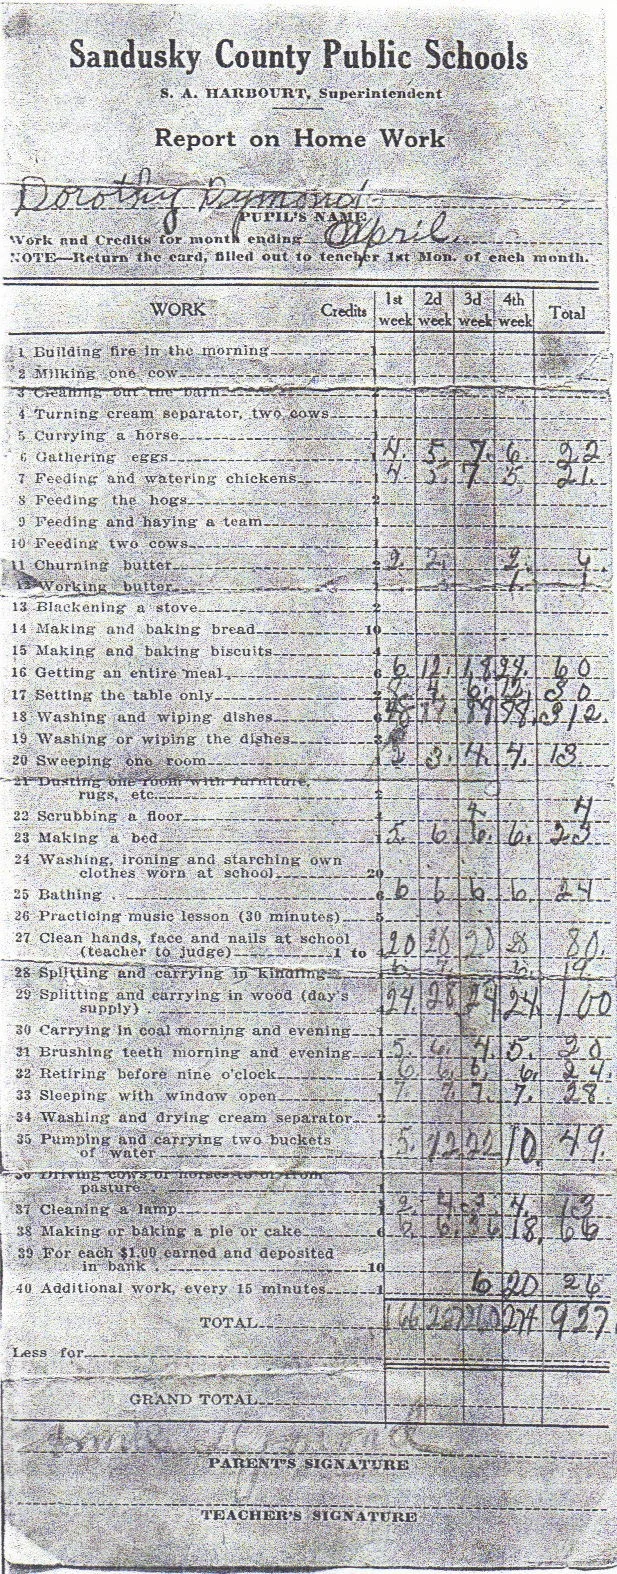 Sandusky County Public Schools
S. A. HARBOURT, Superintendent
Report on Home Work
Dorothy Dymond
PUPIL'S NAME
Work and Credits for month ending April
NOTE—Return the card, filled out to teacher 1st Mon. of each month.
WORK Credits 1st week 2d week 3d week 4th week Total
1 Building fire in the morning 1
2 Milking one cow 1
3 Cleaning out the barn 2
4 Turning cream separator, two cows 1
5 Currying a horse 1
6 Gathering eggs 1 4. 5. 7. 6. 22
7 Feeding and watering chickens 1 4 5. 7. 5. 21.
8 Feeding the hogs 2
9 Feeding and haying a team 1
10 Feeding two cows 1
11 Churning butter 2 2. 2. 2. 4.
12 Working butter 1. 1.
13 Blackening a stove 2
14 Making and baking bread 10
15 Making and baking biscuits 4
16 Getting an entire meal 6 6. 12. 18 24. 60
17 Setting the table only 2 8. 4. 6. 12, 30
18 Washing and wiping dishes 6 312.
19 Washing or wiping the dishes 3
20 Sweeping one room 1 2 3. 4. 4. 13
21 Dusting one room with furniture,
rugs, etc. 2
22 Scrubbing a floor 4 4
23 Making a bed 1 5. 6 6. 6. 23
24 Washing, ironing and starching own
clothes worn at school 20
25 Bathing 6 6 6 6 6. 24
26 Practicing music lesson (30 minutes) 5
27 Clean hands, face and nails at school
(teacher to judge) 1 to 4 20 20 20 80.
28 Splitting and carrying in kindling 19.
29 Splitting and carrying in wood (day's
supply) 24. 28 24 24. 100
30 Carrying in coal morning and evening 1
31 Brushing teeth morning and evening 1 5. 6. 4. 5. 20
32 Retiring before nine o'clock 1 6 6. 6. 6. 24.
33 Sleeping with window open 1 7. 7. 7. 7. 28
34 Washing and drying cream separator 2
35 Pumping and carrying two buckets
of water 1 5. 12 22 10. 49.
36 Driving cows or horses to or from
pasture 1
37 Cleaning a lamp 1 2. 4. 3 4. 13
38 Making or baking a pie or cake 6 6. 6. 36 18. 66
39 For each $1.00 earned and deposited
in bank 10
40 Additional work, every 15 minutes 1 6 20 26
TOTAL 166 274 927
Less for
GRAND TOTAL
Dymond
PARENT'S SIGNATURE
TEACHER'S SIGNATURE